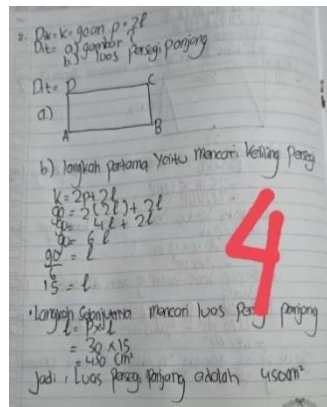 2. Dik = k = 90 cm p = 2l
Dit = a) gambar
b) luas persegi panjang
Dit =
D C
a)
A B
b) langkah pertama yaitu mencari keliling perseg
k = 2p + 2l
90 = 2(2l) + 2l
90 = 4l + 2l
90 = 6l
90/6 = l
15 = l
4
• Langkah selanjutnya mencari luas perse panjang
l = p x l
= 30 x 15
= 450 cm²
Jadi, Luas persegi panjang adalah 450 cm²